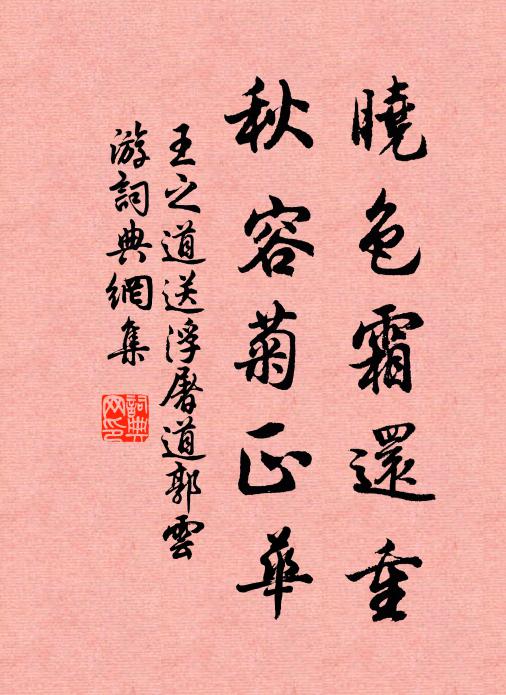 曉色霜還重
秋容菊正華
王之道送浮屠道郭雲
游詞典網集
詞典網印